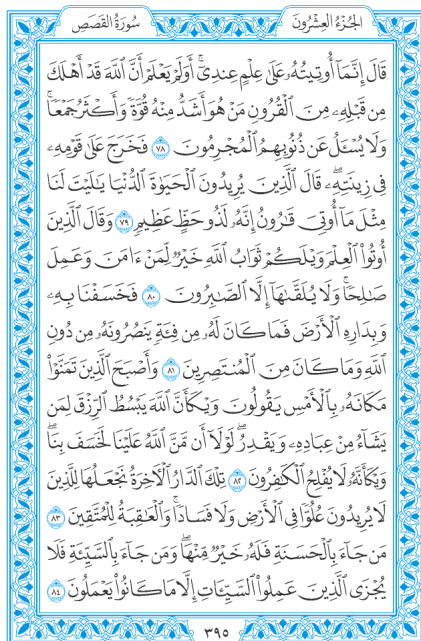 الجُزْءُ العِشْرُونَ
سُورَةُ القَصَصِ
قَالَ إِنَّمَآ أُوتِيتُهُۥ عَلَىٰ عِلْمٍ عِندِيٓۚ أَوَلَمْ يَعْلَمْ أَنَّ ٱللَّهَ قَدْ أَهْلَكَ
مِن قَبْلِهِۦ مِنَ ٱلْقُرُونِ مَنْ هُوَ أَشَدُّ مِنْهُ قُوَّةً وَأَكْثَرُ جَمْعًاۚ
وَلَا يُسْـَٔلُ عَن ذُنُوبِهِمُ ٱلْمُجْرِمُونَ ٧٨ فَخَرَجَ عَلَىٰ قَوْمِهِۦ
فِي زِينَتِهِۦۖ قَالَ ٱلَّذِينَ يُرِيدُونَ ٱلْحَيَوٰةَ ٱلدُّنْيَا يَٰلَيْتَ لَنَا
مِثْلَ مَآ أُوتِيَ قَٰرُونُ إِنَّهُۥ لَذُو حَظٍّ عَظِيمٍ ٧٩ وَقَالَ ٱلَّذِينَ
أُوتُوا۟ ٱلْعِلْمَ وَيْلَكُمْ ثَوَابُ ٱللَّهِ خَيْرٌ لِّمَنْ ءَامَنَ وَعَمِلَ
صَٰلِحًاۚ وَلَا يُلَقَّىٰهَآ إِلَّا ٱلصَّٰبِرُونَ ٨٠ فَخَسَفْنَا بِهِۦ
وَبِدَارِهِ ٱلْأَرْضَ فَمَا كَانَ لَهُۥ مِن فِئَةٍ يَنصُرُونَهُۥ مِن دُونِ
ٱللَّهِ وَمَا كَانَ مِنَ ٱلْمُنتَصِرِينَ ٨١ وَأَصْبَحَ ٱلَّذِينَ تَمَنَّوْا۟
مَكَانَهُۥ بِٱلْأَمْسِ يَقُولُونَ وَيْكَأَنَّ ٱللَّهَ يَبْسُطُ ٱلرِّزْقَ لِمَن
يَشَآءُ مِنْ عِبَادِهِۦ وَيَقْدِرُۖ لَوْلَآ أَن مَّنَّ ٱللَّهُ عَلَيْنَا لَخَسَفَ بِنَاۖ
وَيْكَأَنَّهُۥ لَا يُفْلِحُ ٱلْكَٰفِرُونَ ٨٢ تِلْكَ ٱلدَّارُ ٱلْأٓخِرَةُ نَجْعَلُهَا لِلَّذِينَ
لَا يُرِيدُونَ عُلُوًّا فِي ٱلْأَرْضِ وَلَا فَسَادًاۚ وَٱلْعَٰقِبَةُ لِلْمُتَّقِينَ ٨٣
مَن جَآءَ بِٱلْحَسَنَةِ فَلَهُۥ خَيْرٌ مِّنْهَاۖ وَمَن جَآءَ بِٱلسَّيِّئَةِ فَلَا
يُجْزَى ٱلَّذِينَ عَمِلُوا۟ ٱلسَّيِّـَٔاتِ إِلَّا مَا كَانُوا۟ يَعْمَلُونَ ٨٤
٣٩٥